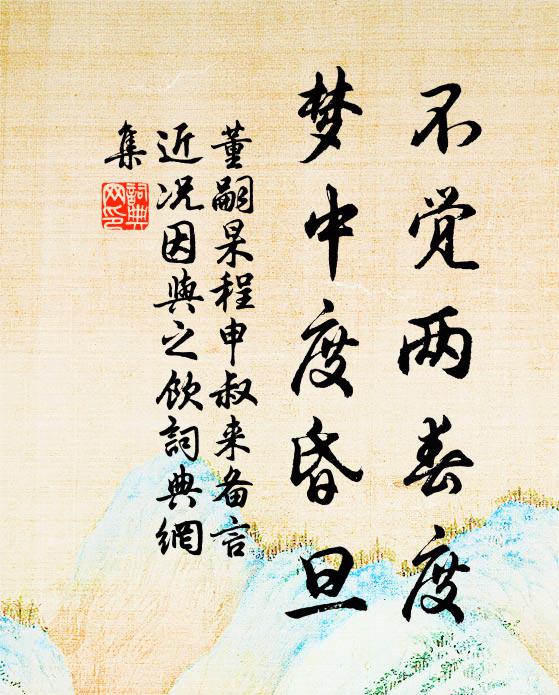 不觉两春度
梦中度昏旦
董嗣杲程申叔来备言
近况因與之饮詞典網
集
詞典网印